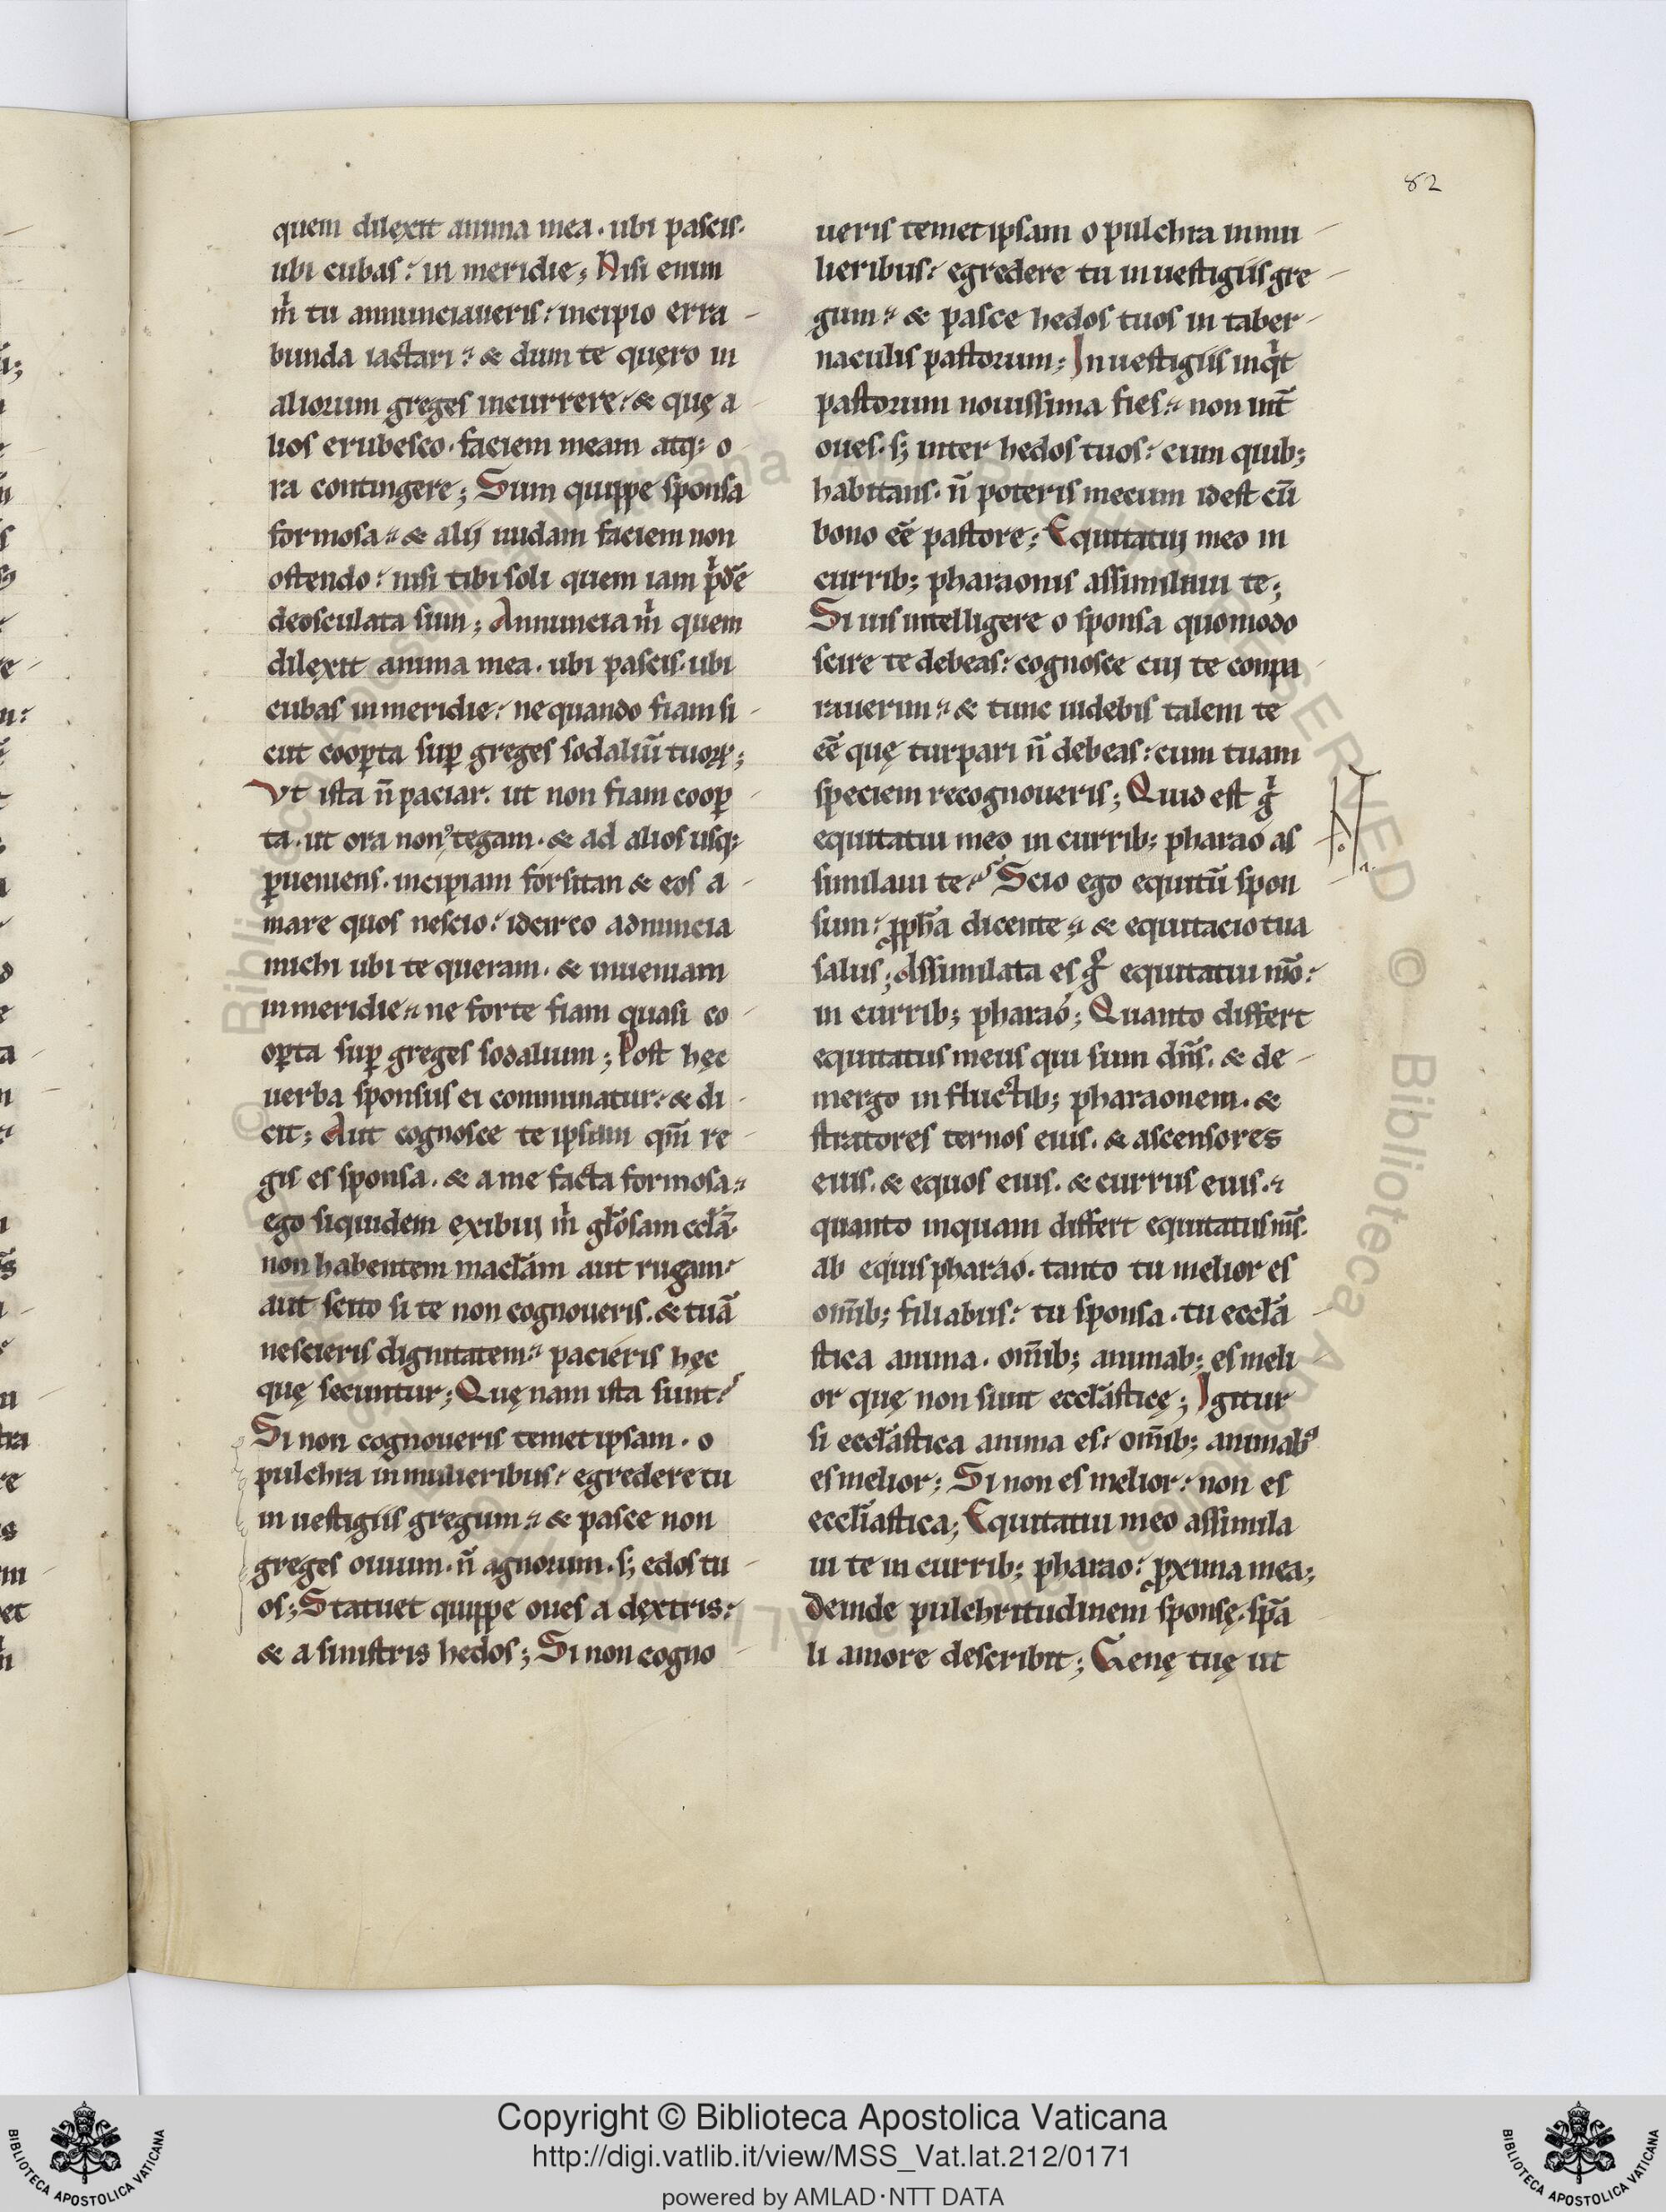 82
quem dilexit anima mea. ubi pascis.
ubi cubas? in meridie; Nisi enim
m̓ tu annunciaueris? incipio erra-
bunda iactari? & dum te quęro in
aliorum greges incurrere? & quę a
lios erubesco. faciem meam atq; o
ra contingere; Sum quippe sponsa
formosa? & alij nudam faciem non
ostendo? nisi tibi soli quem iam p̓dē
deosculata sum; Annuncia m̓ quem
dilexit anima mea. ubi pascis. ubi
cubas in meridie? ne quando fiam si-
cut coop̱ta sup̱ greges sodaliū tuoꝝ;
Vt ista n̄ paciar. ut non fiam coop̱-
ta. ut ora non tegam. & ad alios usq;
p̱ueniens. incipiam forsitan & eos a-
mare quos nescio? idcirco adnuncia
michi ubi te queram. & inueniam
in meridie? ne forte fiam quasi co-
op̱ta sup̱ greges sodalium; Post hęc
uerba sponsus ei comminatur? & di-
cit; Aut cognosce te ipsam qm̄ re-
gis es sponsa. & a me facta formosa?
ego siquidem exibui m̓ głosam ecclā.
non habentem macłam aut rugam?
aut scito si te non cognoueris. & tuā
nescieris dignitatem? pacieris hęc
quę secuntur; Quęnam ista sunt?
Si non cognoueris temetipsam. o
pulchra in mulieribus? egredere tu
in uestigiis gregum? & pasce non
greges ouium. n̄ agnorum. s; edos tu-
os; Statuet quippe oues a dextris?
& a sinistris hedos; Si non cogno-
ueris temetipsam o pulchra in mu-
lieribus? egredere tu in uestigiis gre-
gum? & pasce hedos tuos in taber-
naculis pastorum; In uestigiis inq̓t
pastorum nouissima fies? non int̄
oues. s; inter hedos tuos? cum quib;
habitans. n̄ poteris mecum id est cū
bono ēē pastore; Equitatui meo in
currib; pharaonis assimilaui te;
Si uis intelligere o sponsa quomodo
scire te debeas? cognosce cui te conpa-
rauerim? & tunc uidebis talem te
ēē quę turpari n̄ debeas? cum tuam
speciem recognoueris; Quid est g̓
equitatui meo in currib; pharao as
similaui te? Scio ego equitū spon-
sum? ꝓph̄a dicente? & equitacio tua
salus; Assimilata es g̊ equitatui mō?
in currib; pharaó; Quanto differt
equitatus meus qui sum dn̄s. & de-
mergo in fluctib; pharaonem. &
stratores ternos eius. & ascensores
eius. & equos eius. & currus eius?
quanto inquam differt equitatus ms̄.
ab equis pharao. tanto tu melior es
omīb; filiabus? tu sponsa. tu eccłā-
stica anima. omīb; animab; es meli-
or quę non sunt eccłasticę; Igitur
si eccłastica anima es? omīb; animabꝰ
es melior; Si non es melior? non es
eccłiastica; Equitatui meo assimila
ui te in currib; pharao? ꝓxima mea;
Deinde pulchritudinem sponsę. spā-
li amore describit; Genę tuę ut
© Biblioteca Apostolica Vaticana
Copyright © Biblioteca Apostolica Vaticana
http://digi.vatlib.it/view/MSS_Vat.lat.212/0171
powered by AMLAD·NTT DATA
BIBLIOTECA APOSTOLICA VATICANA
BIBLIOTECA APOSTOLICA VATICANA